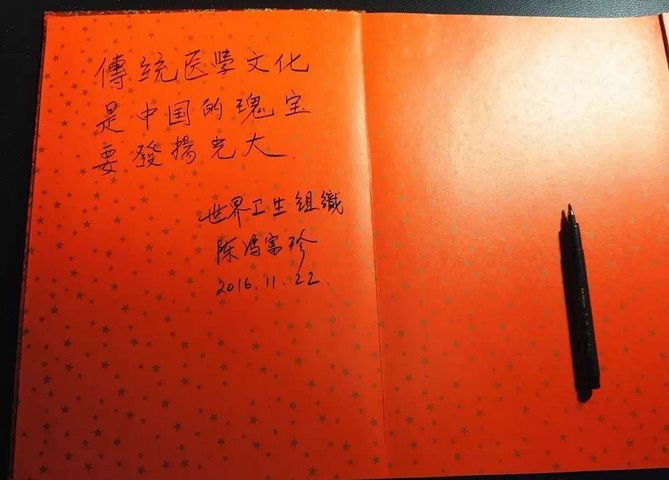 傳统医學文化
是中国的瑰宝
要發揚光大
世界卫生组織
陈冯富珍
2016.11.22.